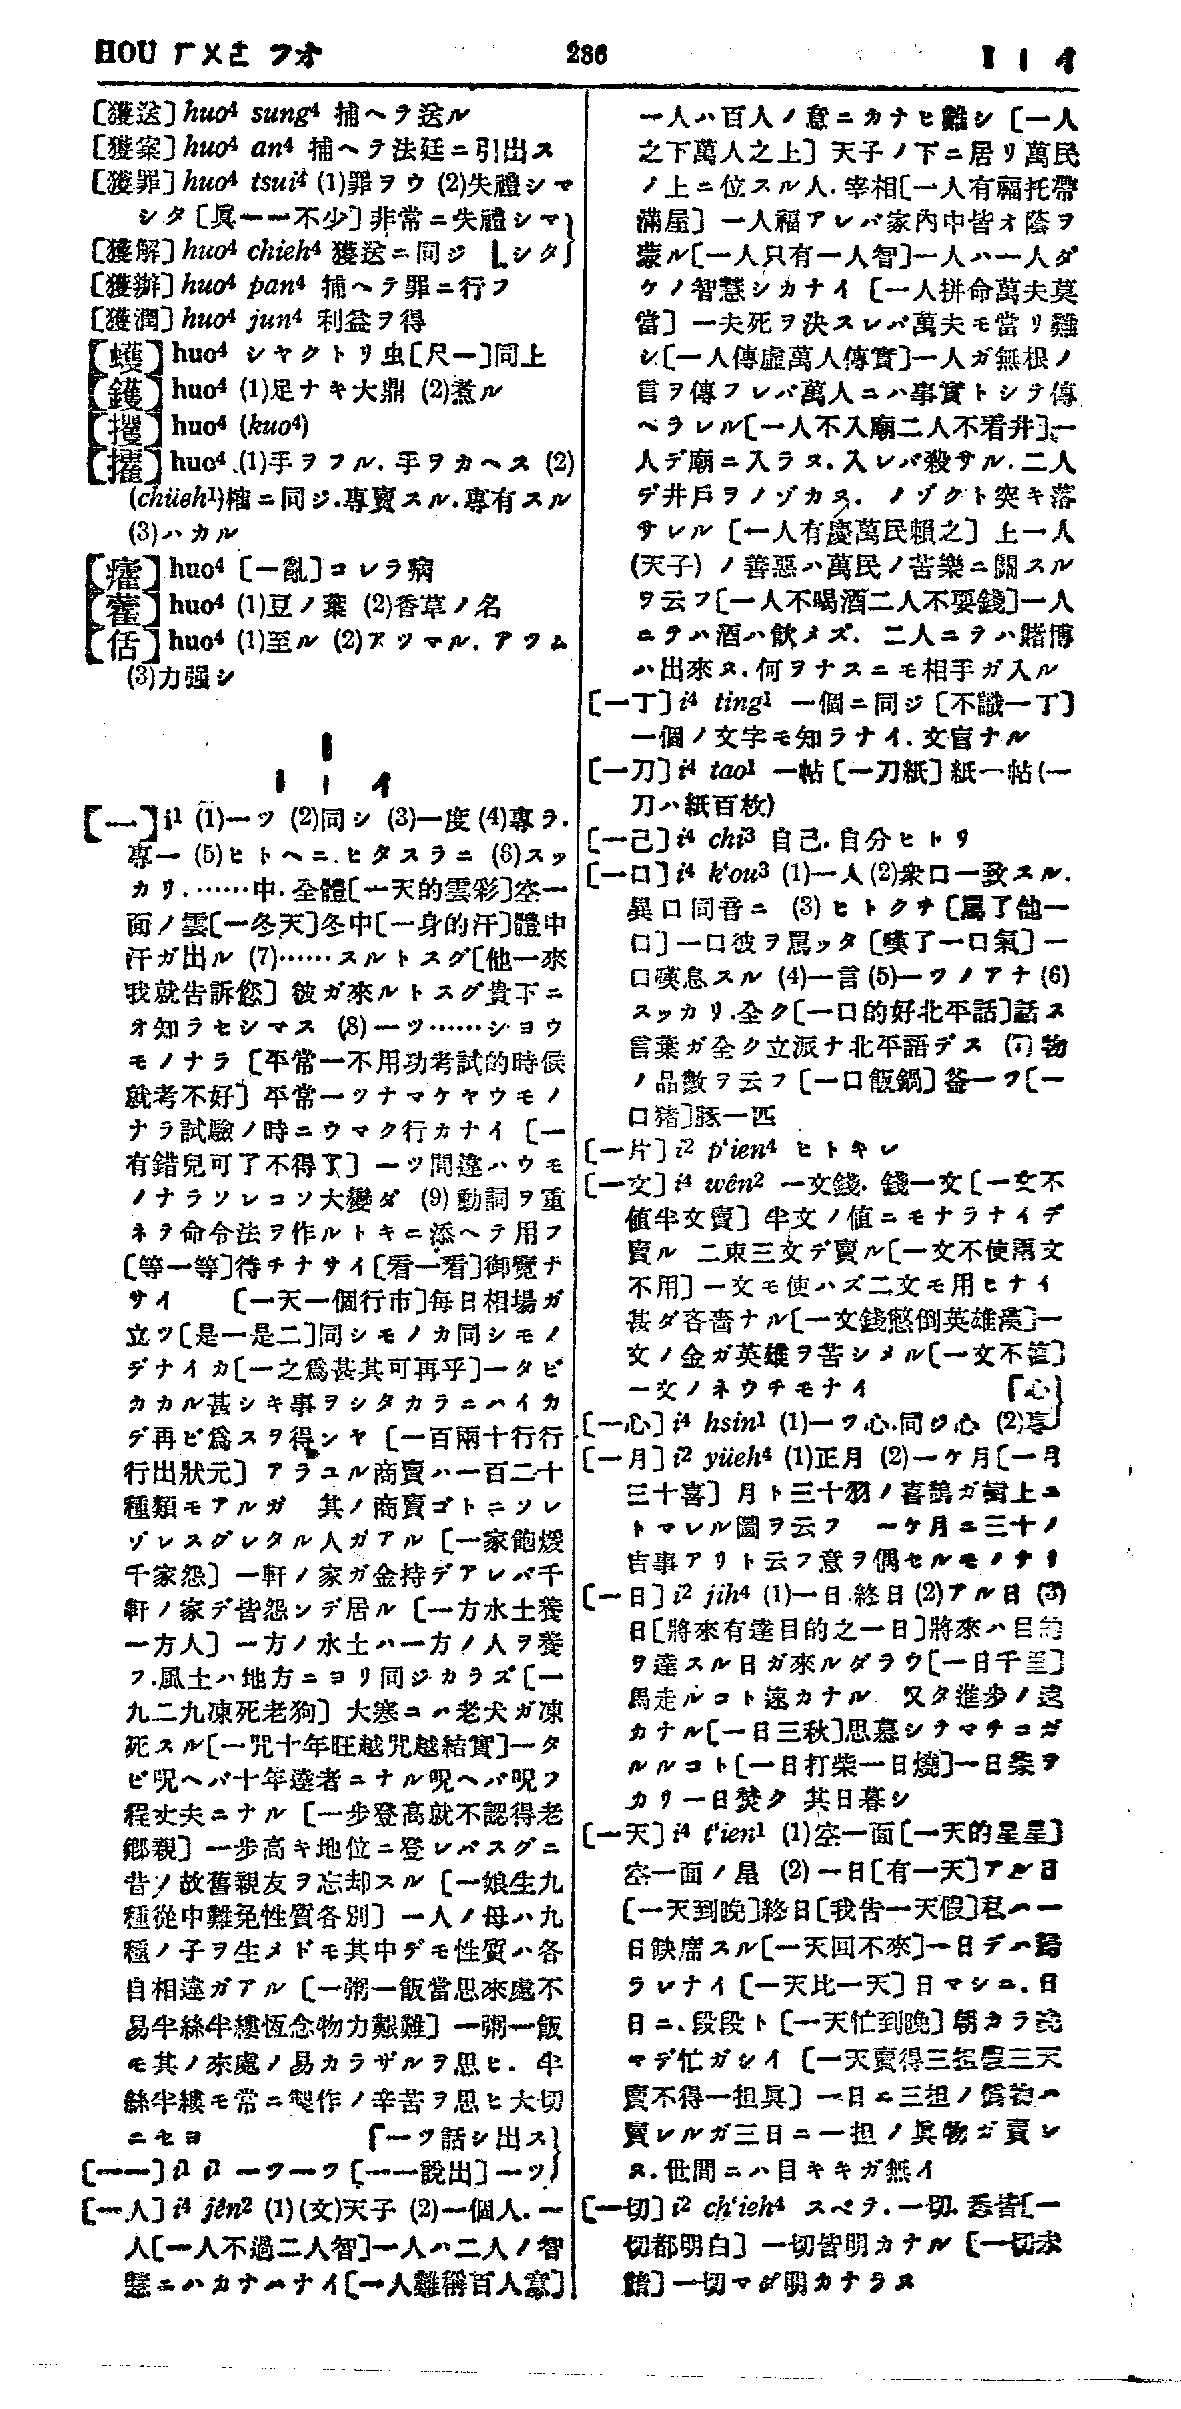 HOU ㄏㄨㄛ フオ
286
I ㄧ イ
[獲送] huo⁴ sung⁴ 捕ヘテ送ル
[獲案] huo⁴ an⁴ 捕ヘテ法廷ニ引出ス
[獲罪] huo⁴ tsui⁴ (1)罪ヲウ (2)失禮シマ
シタ [眞一一不少] 非常ニ失禮シマ
[獲解] huo⁴ chieh⁴ 獲送ニ同ジ [シタ]
[獲辦] huo⁴ pan⁴ 捕ヘテ罪ニ行フ
[獲潤] huo⁴ jun⁴ 利益ヲ得
【蠖】huo⁴ シヤクトリ虫[尺一]同上
【鑊】huo⁴ (1)足ナキ大鼎 (2)煮ル
【攫】huo⁴ (kuo⁴)
【擢】huo⁴ (1)手ヲフル. 手ヲカヘス (2)
(chüeh¹)榷ニ同ジ.專賣スル.專有スル
(3)ハカル
【癨】huo⁴ [一亂]コレラ病
【藿】huo⁴ (1)豆ノ葉 (2)香草ノ名
【佸】huo⁴ (1)至ル (2)アツマル. アツム
(3)力强シ
I
I ㄧ イ
【一】i¹ (1)一ツ (2)同シ (3)一度 (4)專ラ.
專一 (5)ヒトヘニ.ヒタスラニ (6)スッ
カリ.……中.全體[一天的雲彩]空一
面ノ雲[一冬天]冬中[一身的汗]體中
汗ガ出ル (7)……スルトスグ[他一來
我就告訴您] 彼ガ來ルトスグ貴下ニ
オ知ラセシマス (8)一ツ……シヨウ
モノナラ [平常一不用功考試的時候
就考不好] 平常一ツナマケヤウモノ
ナラ試驗ノ時ニウマク行カナイ [一
有錯兒可了不得了] 一ツ間違ハウモ
ノナラソレコソ大變ダ (9)動詞ヲ重
ネヲ命令法ヲ作ルトキニ添ヘテ用フ
[等一等]待チナサイ[看一看]御覽ナ
サイ [一天一個行市]每日相場ガ
立ツ[是一是二]同シモノカ同シモノ
デナイカ[一之爲甚其可再乎]一タビ
カカル甚シキ事ヲシタカラニハイカ
デ再ビ爲スヲ得シヤ [一百兩十行行
行出狀元] アラユル商賣ハ一百二十
種類モアルガ 其ノ商賣ゴトニソレ
ゾレスグレタル人ガアル [一家飽煖
千家怨] 一軒ノ家ガ金持デアレバ千
軒ノ家デ皆怨ンデ居ル [一方水土養
一方人] 一方ノ水土ハ一方ノ人ヲ養
フ.風土ハ地方ニヨリ同ジカラズ[一
九二九凍死老狗] 大寒ニハ老犬ガ凍
死スル[一咒十年旺越咒越結實]一タ
ビ呪ヘバ十年達者ニナル呪ヘバ呪フ
程丈夫ニナル [一步登高就不認得老
鄉親] 一步高キ地位ニ登レバスグニ
昔ノ故舊親友ヲ忘却スル [一娘生九
種從中難免性質各別] 一人ノ母ハ九
種ノ子ヲ生メドモ其中デモ性質ハ各
自相違ガアル [一粥一飯當思來處不
易半絲半縷恆念物力艱難] 一粥一飯
モ其ノ來處ノ易カラザルヲ思ヒ. 半
絲半縷モ常ニ製作ノ辛苦ヲ思ヒ大切
ニセヨ [一ツ話シ出ス]
[一一] i¹ i¹ 一ツ一ツ [一一說出] 一ツ
[一人] i⁴ jên² (1)(文)天子 (2)一個人. 一
人[一人不過二人智]一人ハ二人ノ智
慧ニハカナハナイ[一人難稱百人意]
一人ハ百人ノ意ニカナヒ難シ [一人
之下萬人之上] 天子ノ下ニ居リ萬民
ノ上ニ位スル人.宰相[一人有福托帶
滿屋] 一人福アレバ家內中皆オ蔭ヲ
蒙ル[一人只有一人智]一人ハ一人ダ
ケノ智慧シカナイ [一人拼命萬夫莫
當] 一夫死ヲ決スレバ萬夫モ當リ難
シ[一人傳虛萬人傳實]一人ガ無根ノ
言ヲ傳フレバ萬人ニハ事實トシテ傳
ヘラレル[一人不入廟二人不看井]一
人デ廟ニ入ラヌ.入レバ殺サル.二人
デ井戶ヲノゾカヌ. ノゾクト突キ落
サレル [一人有慶萬民賴之] 上一人
(天子)ノ善惡ハ萬民ノ苦樂ニ關スル
ヲ云フ[一人不喝酒二人不耍錢]一人
ニテハ酒ハ飲メズ. 二人ニテハ賭博
ハ出來ヌ.何ヲナスニモ相手ガ入ル
[一丁] i⁴ ting¹ 一個ニ同ジ [不識一丁]
一個ノ文字モ知ラナイ.文盲ナル
[一刀] i⁴ tao¹ 一帖 [一刀紙] 紙一帖(一
刀ハ紙百枚)
[一己] i⁴ chi³ 自己.自分ヒトリ
[一口] i⁴ k'ou³ (1)一人 (2)衆口一致スル.
異口同音ニ (3)ヒトクチ [罵了他一
口] 一口彼ヲ罵ッタ [嘆了一口氣] 一
口嘆息スル (4)一言 (5)一ツノアナ (6)
スッカリ.全ク[一口的好北平話]話ス
言葉ガ全ク立派ナ北平語デス (7)物
ノ品數ヲ云フ[一口飯鍋] 釜一ツ[一
口猪]豚一匹
[一片] i² p'ien⁴ ヒトキレ
[一文] i⁴ wên² 一文錢. 錢一文 [一文不
値半文賣] 半文ノ値ニモナラナイデ
賣ル 二束三文デ賣ル[一文不使兩文
不用] 一文モ使ハズ二文モ用ヒナイ
甚ダ吝嗇ナル[一文錢憋倒英雄漢]一
文ノ金ガ英雄ヲ苦シメル[一文不值]
一文ノネウチモナイ [心]
[一心] i⁴ hsin¹ (1)一ツ心.同ジ心 (2)專
[一月] i² yüeh⁴ (1)正月 (2)一ケ月[一月
三十喜] 月ト三十羽ノ喜鵲ガ樹上ニ
トマレル圖ヲ云フ 一ケ月ニ三十ノ
吉事アリト云フ意ヲ偶セルモノナリ
[一日] i² jih⁴ (1)一日.終日 (2)アル日 (3)
日[將來有達目的之一日]將來ハ目的
ヲ達スル日ガ來ルダラウ[一日千里]
馬走ルコト速カナル 又タ進步ノ速
カナル[一日三秋]思慕シテマチコガ
ルルコト[一日打柴一日燒]一日柴ヲ
カリ一日焚ク 其日暮シ
[一天] i⁴ t'ien¹ (1)空一面[一天的星星]
空一面ノ星 (2)一日[有一天]アル日
[一天到晚]終日[我告一天假]私ハ一
日缺席スル[一天回不來]一日デハ歸
ラレナイ [一天比一天] 日マシニ.日
日ニ.段段ト [一天忙到晚] 朝カラ晚
マデ忙ガシイ [一天賣得三担假三天
賣不得一担眞] 一日ニ三担ノ僞物ハ
賣レルガ三日ニ一担ノ眞物ガ賣レ
ヌ.世間ニハ目キキガ無イ
[一切] i² ch'ieh⁴ スベテ.一切.悉皆[一
切都明白] 一切皆明カナル [一切未
諳] 一切マダ明カナラヌ